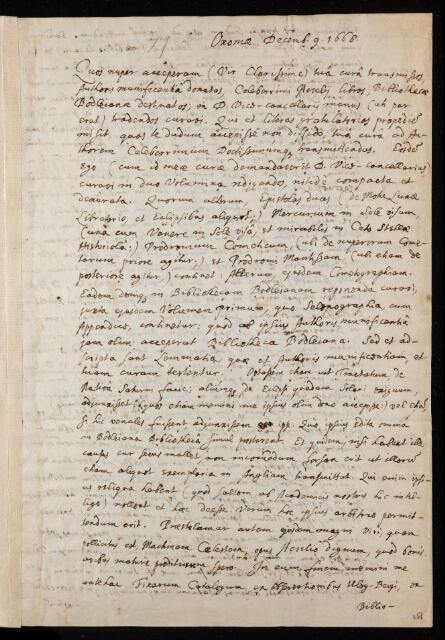 Oxoniæ Decemb. 9. 1668.
Quos nuper acceperam (Vir Clarissime) tuâ curâ transmissos,
Authoris munificentiâ donatos, Celeberrimi Hevelij libros Bibliothecæ
Bodleianæ destinatos, in D. Vice-cancellarij manus (uti par
erat) tradendos curavi. Qui et literas gratulatorias propediem
misit, quas te dudum accepisse non diffido, tuâ curâ ad Au-
thorem Celeberrimum Doctissimumque transmittendas. Eosdem
ego (cum id meæ curæ demandaverit D. Vice-Cancellarius)
curavi in duo Volumina redigendos, nitide compacta et
deaurata. Quorum alterum, Epistolas duas (de Motu Lunæ
Libratorio, et Eclipsibus aliquot;) Mercurium in Sole visum
(una cum Venere in Sole visâ, et mirabilis in Ceto Stellæ
Historiolâ;) Prodromum Cometicum, (ubi de nuperorum Come-
tarum priore agitur,) et Prodromi Mantissam (ubi etiam de
posteriore agitur) continet: Alterum, ejusdem Cometographiam.
Eadem demum in Bibliothecam Bodleianam reponenda curavi,
juxta ejusdem Volumen primum, quo Selenographia, cum
Appendice, continetur; quod ab ipsius Authoris munificentiâ
jam olim acceperat Bibliotheca Bodleiana. Sed et ad-
scripta sunt Lemmata quæ et Authoris munificentiam, et
tuam curam testentur. Optassem etiam ut Tractatum de
Nativa Saturni facie; aliumque de Eclipsi quadam Solari exiguum,
adjunxisset (quos etiam memini me ipsius olim dono accepisse) vel etiam
si hic venales fuissent adjunxissem Quo ipsius edita omnia
in Bodleiana Bibliotheca simul prostarent. Et quidem, nisi habeat ille
causas cur secus mallet non incommodum forsan erit ut illorum
etiam aliquot exemplaria in Angliam transmittat. Qui enim ipsi-
us reliqua habent (quod saltem ab Academicis nostris hic intel-
ligo) nollent et hæc deesse. Verum hoc ipsius arbitrio permit-
tendum erit. Præstolamur autem quidem magni Viri, quam
pollicitus est, Machinam Cælestem, opus Hevelio dignum, quod bonis
avibus mature proditurum spero. In eum finem memini me
antehac Fixarum Catalogum ex observationibus Ulug-Beigi, ex
Biblio-